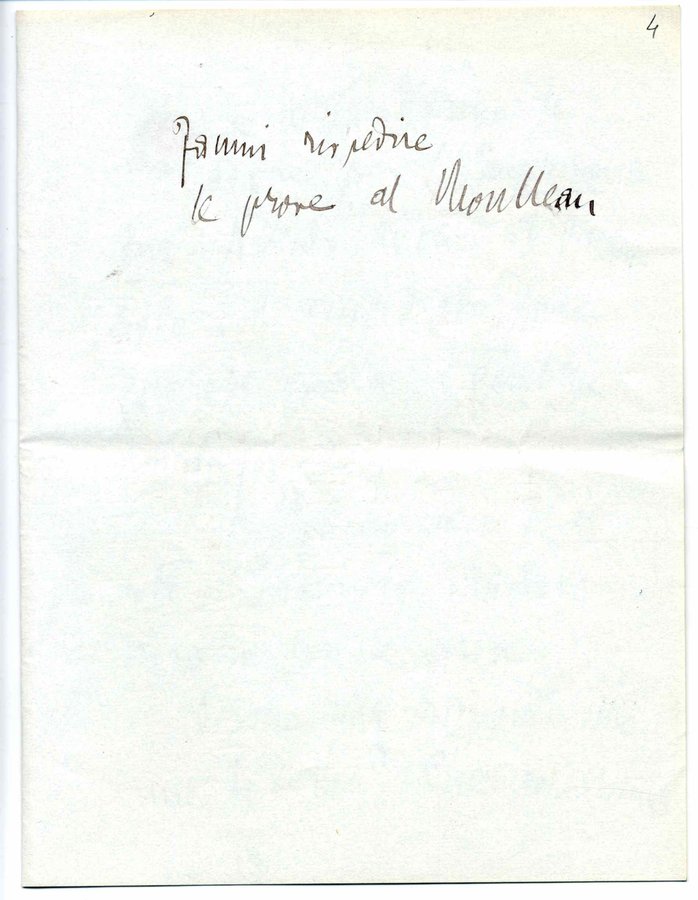 4
Fammi rispedire
le prove al Moulleau